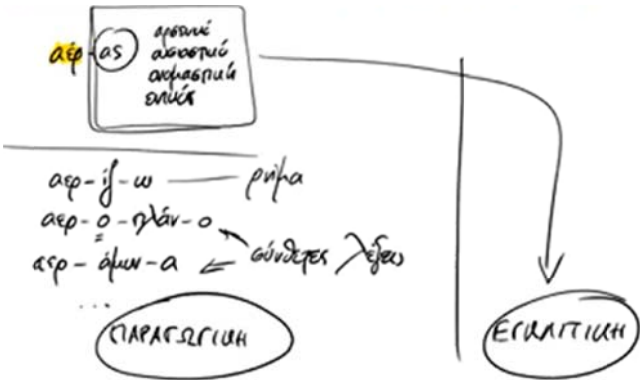 αέρ-ας
αρσενικό
ουσιαστικό
ονομαστική
ενικός
αερ-ίζ-ω — ρήμα
αερ-ο-πλάν-ο
αερ-άμυν-α ← σύνθετες λέξεις
...
ΠΑΡΑΓΩΓΙΚΗ
ΕΓΚΛΙΤΙΚΗ